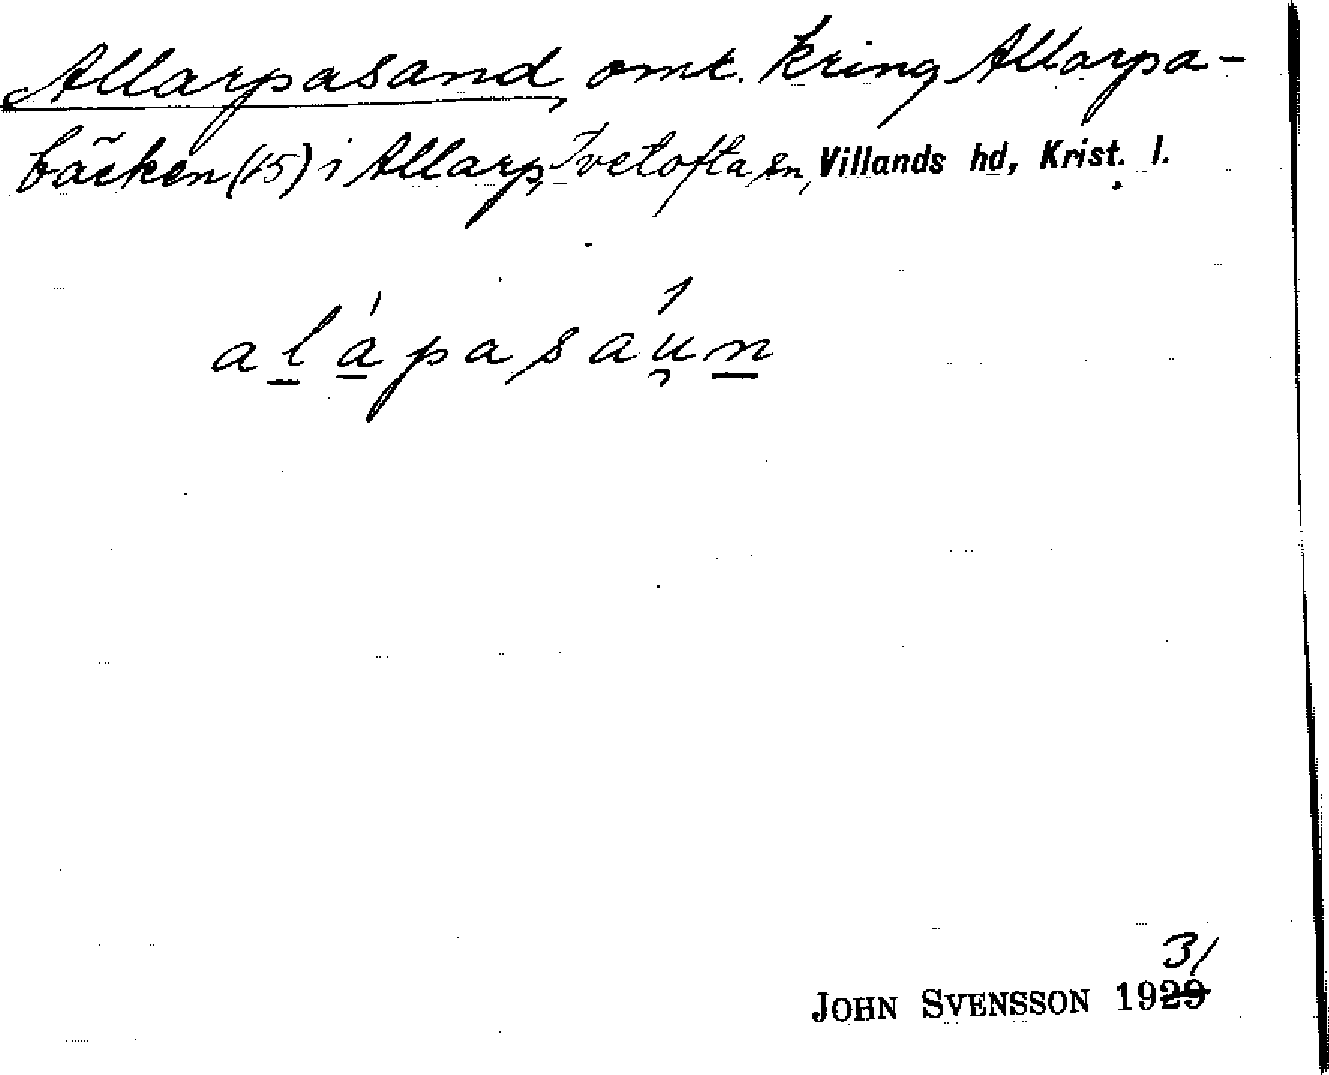 Allarpasand, omr. kring Allarpa-
bäcken (15) i Allarp, Ivetofta sn, Villands hd, Krist. l.
alápasáun
31
JOHN SVENSSON 1929